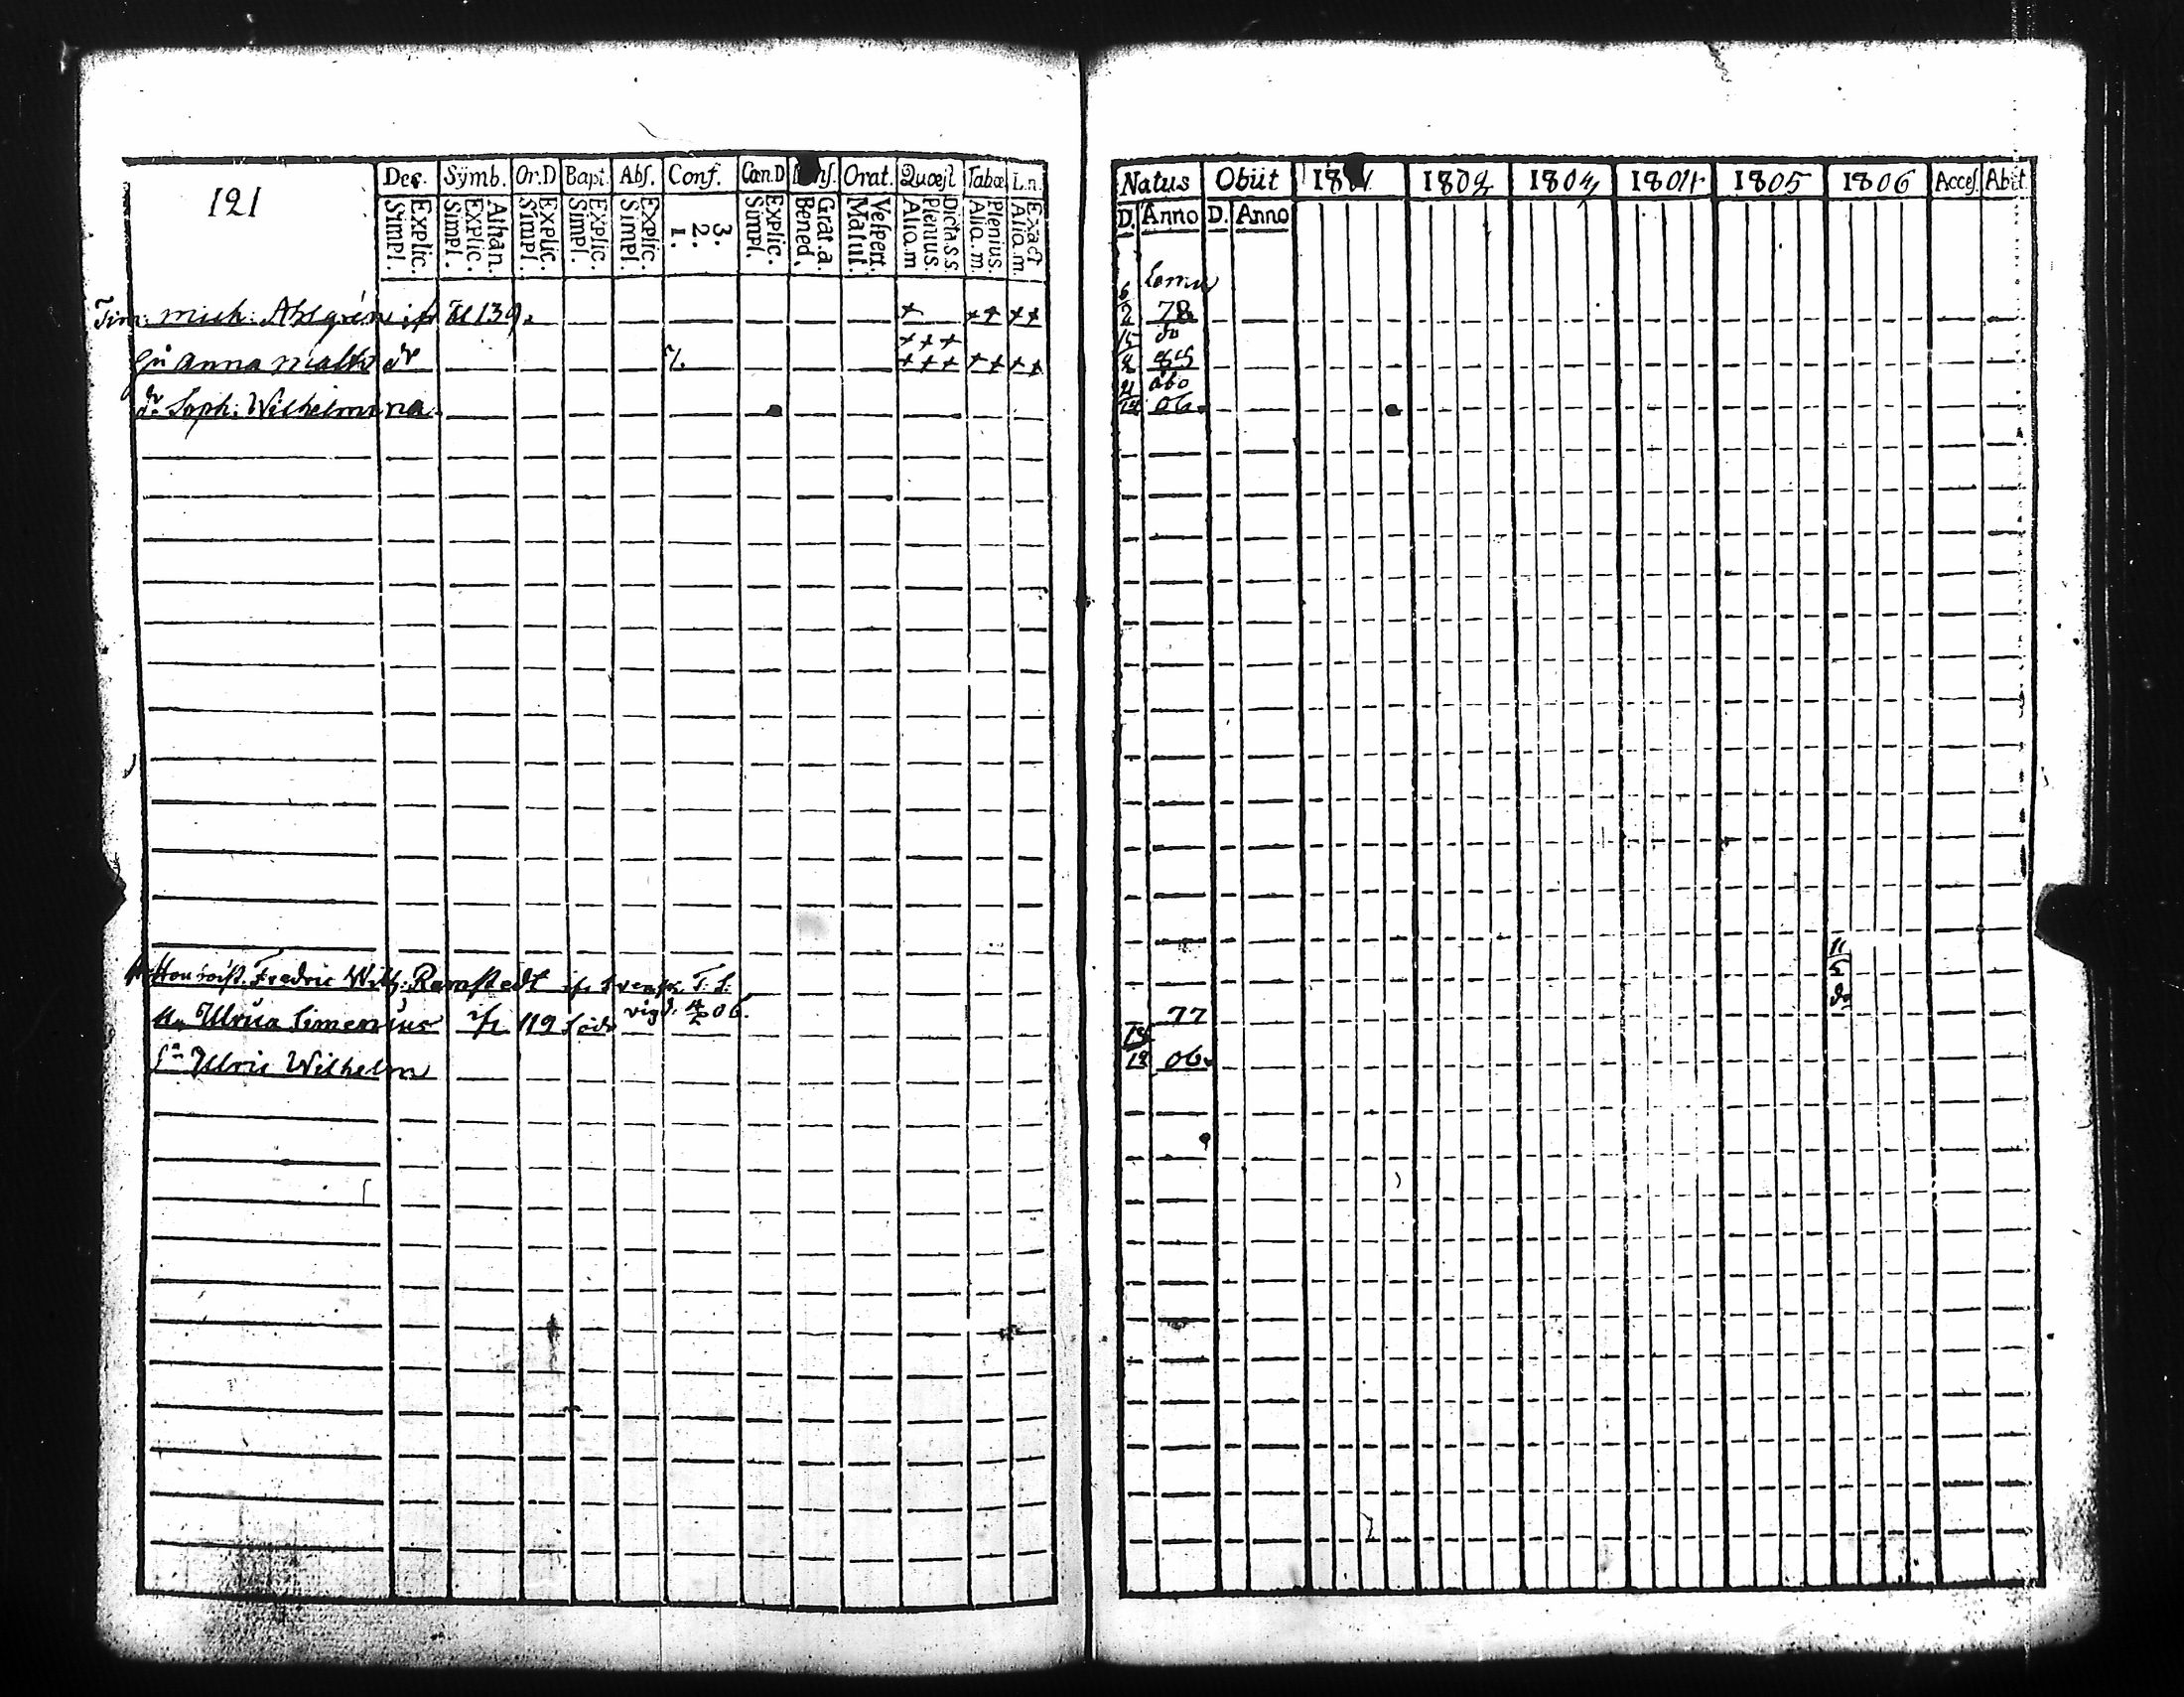 121
Dec. Symb. Or.D Bapt. Abs. Conf. Cœn.D Orat. Quæst Tabœ L.n.
Explic. Simpl. Athan. Explic. Simpl. Explic. Simpl. Explic. Simpl. Explic. Simpl. 3. 2. 1. Explic. Simpl. Grat.a. Bened. Vespert. Matut. Dicta.S.S. Plenius. Aliq.m Plenius. Aliq.m. Exact Aliq.m.
mich: Ahlgrén ifr 139.
Anna do
do Soph: Wilhelmina
Fredric Wilh: Ramstedt ifr Svensk. T. S.
Ulrica Simenius 1/2 119 vigd. 4/2 06.
Sn Ulric Wilhelm
Natus Obiit 1802 1804 1804 1805 1806 Acces. Abit
D. Anno D. Anno
6
2 78
15 do
8 85
Åbo
06.
11
5
do
77
18
12 06.